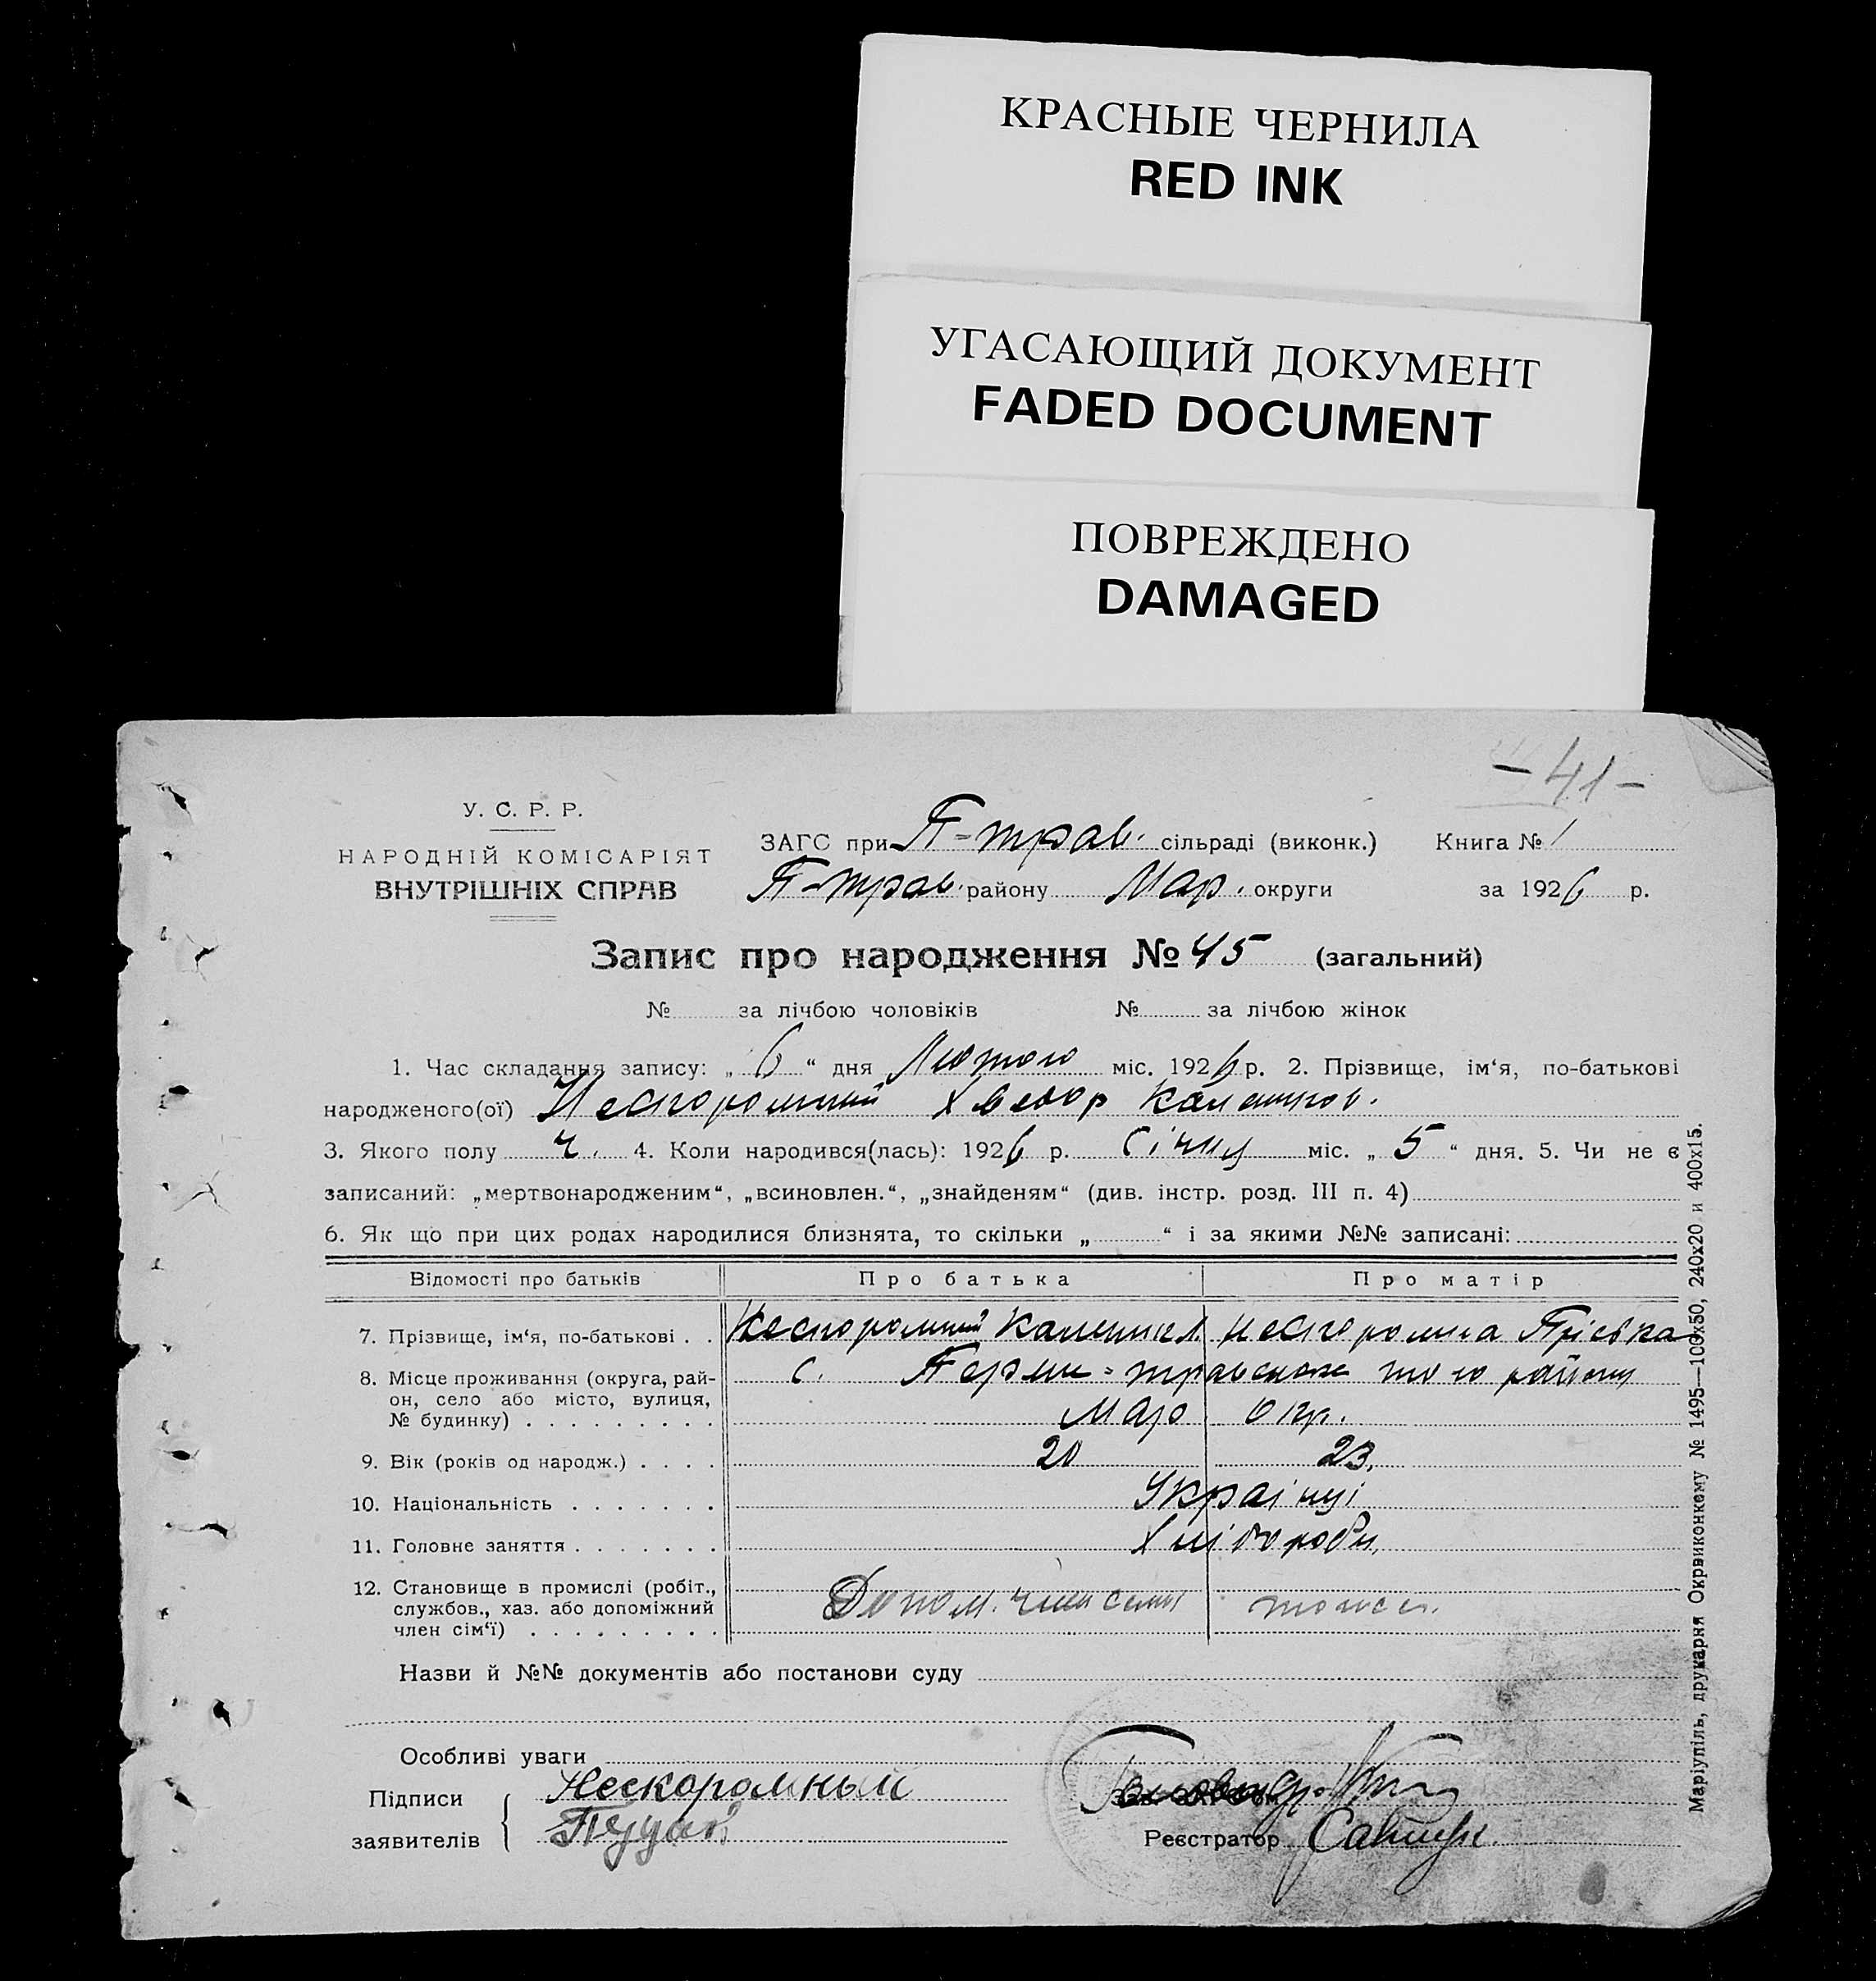 КРАСНЫЕ ЧЕРНИЛА
RED INK
УГАСАЮЩИЙ ДОКУМЕНТ
FADED DOCUMENT
ПОВРЕЖДЕНО
DAMAGED
-41-
У. С. Р. Р.
НАРОДНІЙ КОМІСАРІЯТ
ВНУТРІШНІХ СПРАВ
ЗАГС при П-трав. сільраді (виконк.) Книга № 1
П-трав. району Мар. округи за 1926 р.
Запис про народження № 45 (загальний)
№ за лічбою чоловіків № за лічбою жінок
1. Час складання запису: „ 6 “ дня Лютого міс. 1926 р. 2. Прізвище, ім‘я, по-батькові
народженого(ої) Нескоромний Хведор Калеників.
3. Якого полу ч. 4. Коли народився(лась): 1926 р. Січня міс. „ 5 “ дня. 5. Чи не є
записаний: „мертвонародженим“, „всиновлен.“, „знайденям“ (див. інстр. розд. III п. 4)
6. Як що при цих родах народилися близнята, то скільки „ “ і за якими №№ записані:
Відомості про батьків Про батька Про матір
7. Прізвище, ім‘я, по-батькові . . Нескоромний Каленик Нескоромна Пріська
8. Місце проживання (округа, рай- с. Перш-травневе того району
он, село або місто, вулиця,
№ будинку) . . . . . . . . . Мар окр.
9. Вік (років од народж.) . . . . 20 23.
10. Національність . . . . . . . Українці
11. Головне заняття . . . . . . . Хлібороби.
12. Становище в промислі (робіт.,
службов., хаз. або допоміжний Допом. член семї тоже.
член сім‘ї) . . . . . . . . .
Назви й №№ документів або постанови суду
Особливі уваги
Підписи Нескоромный
заявителів
Реєстратор
Маріупіль, друкарня Окрвиконкому № 1495—100х50, 240х20 и 400х15.